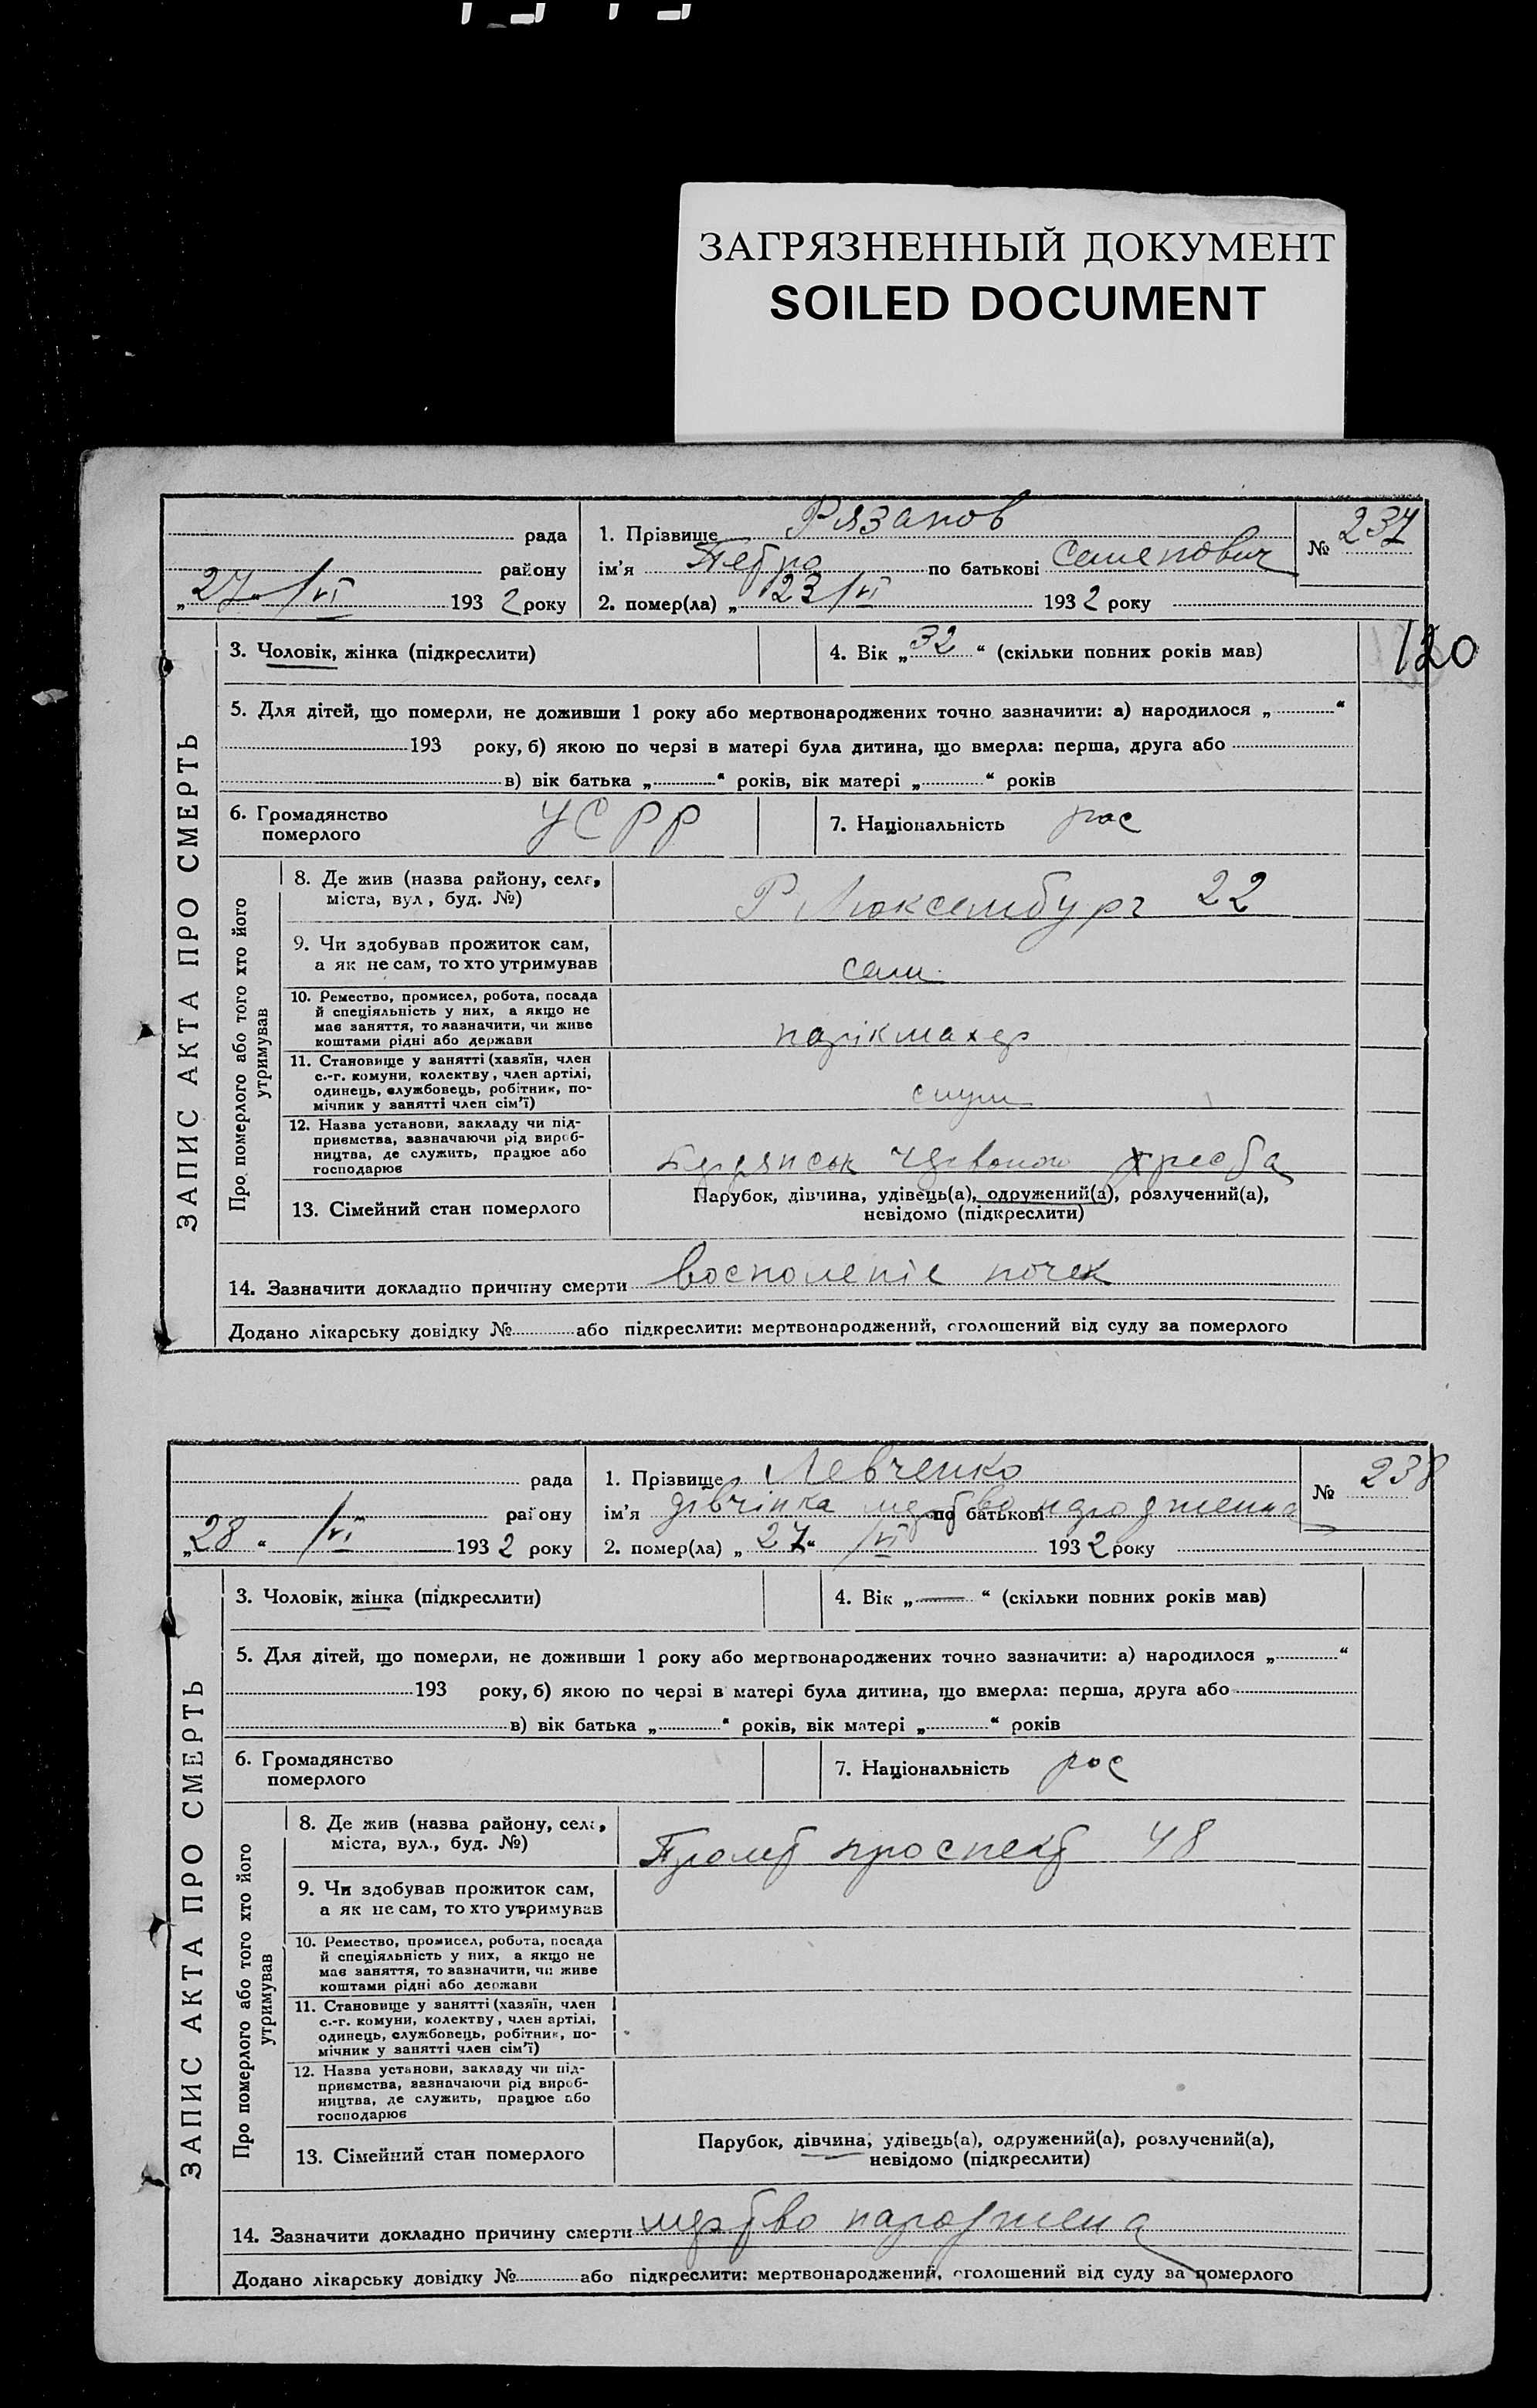 ЗАГРЯЗНЕННЫЙ ДОКУМЕНТ
SOILED DOCUMENT
рада
1. Прізвище Рязанов
№ 237
району
ім'я Петро по батькові Семенович
„27“ /VI 1932 року
2. помер(ла) „23 /VI 1932 року
120
ЗАПИС АКТА ПРО СМЕРТЬ
3. Чоловік, жінка (підкреслити)
4. Вік „32“ (скільки повних років мав)
5. Для дітей, що померли, не доживши 1 року або мертвонароджених точно зазначити: а) народилося „ “
193 року, б) якою по черзі в матері була дитина, що вмерла: перша, друга або
в) вік батька „ “ років, вік матері „ “ років
6. Громадянство
померлого
УСРР
7. Національність рос
Про померлого або того хто його
утримував
8. Де жив (назва району, села,
міста, вул., буд. №)
Р Люксембург 22
9. Чи здобував прожиток сам,
а як не сам, то хто утримував
сам
10. Ремество, промисел, робота, посада
й спеціяльність у них, а якщо не
має заняття, то зазначити, чи живе
коштами рідні або держави
парікмахер
11. Становище у занятті (хазяїн, член
с.-г. комуни, колективу, член артілі,
одинець, службовець, робітник, по-
мічник у занятті член сім'ї)
12. Назва установи, закладу чи під-
приємства, зазначаючи рід вироб-
ництва, де служить, працює або
господарює
Бердянськ Червоного хреста
13. Сімейний стан померлого
Парубок, дівчина, удівець(а), одружений(а), розлучений(а),
невідомо (підкреслити)
14. Зазначити докладно причину смерти восполеніе почек
Додано лікарську довідку № або підкреслити: мертвонароджений, оголошений від суду за померлого
рада
1. Прізвище Левченко
№ 238
району
ім'я дівчінка мертво по батькові народженна
„28“ /VI 1932 року
2. помер(ла) „27“ /VI 1932 року
ЗАПИС АКТА ПРО СМЕРТЬ
3. Чоловік, жінка (підкреслити)
4. Вік „—“ (скільки повних років мав)
5. Для дітей, що померли, не доживши 1 року або мертвонароджених точно зазначити: а) народилося „ “
193 року, б) якою по черзі в матері була дитина, що вмерла: перша, друга або
в) вік батька „ “ років, вік матері „ “ років
6. Громадянство
померлого
7. Національність рос
Про померлого або того хто його
утримував
8. Де жив (назва району, села,
міста, вул., буд. №)
Пролет проспект 48
9. Чи здобував прожиток сам,
а як не сам, то хто утримував
10. Ремество, промисел, робота, посада
й спеціяльність у них, а якщо не
має заняття, то зазначити, чи живе
коштами рідні або держави
11. Становище у занятті (хазяїн, член
с.-г. комуни, колектву, член артілі,
одинець, службовець, робітник, по-
мічник у занятті член сім'ї)
12. Назва установи, закладу чи під-
приємства, зазначаючи рід вироб-
ництва, де служить, працює або
господарює
13. Сімейний стан померлого
Парубок, дівчина, удівець(а), одружений(а), розлучений(а),
невідомо (підкреслити)
14. Зазначити докладно причину смерти мертво народжена
Додано лікарську довідку № або підкреслити: мертвонароджений, оголошений від суду за померлого